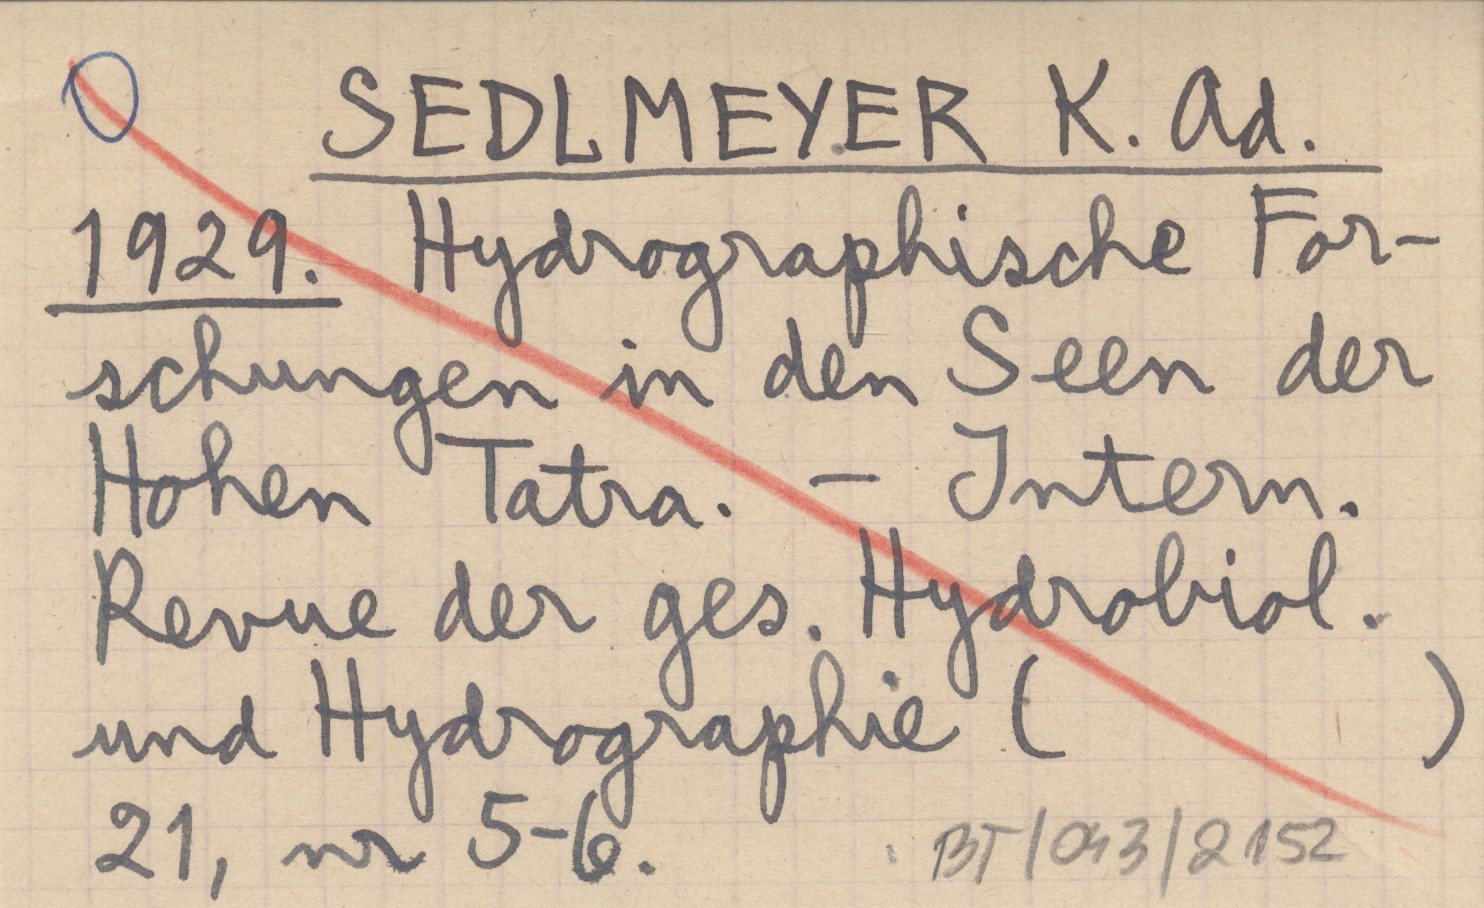 SEDLMEYER K. Ad.
1929. Hydrographische For-
schungen in den Seen der
Hohen Tatra. – Intern.
Revue der ges. Hydrobiol.
und Hydrographie ( )
21, nr 5-6.
BT/043/2152